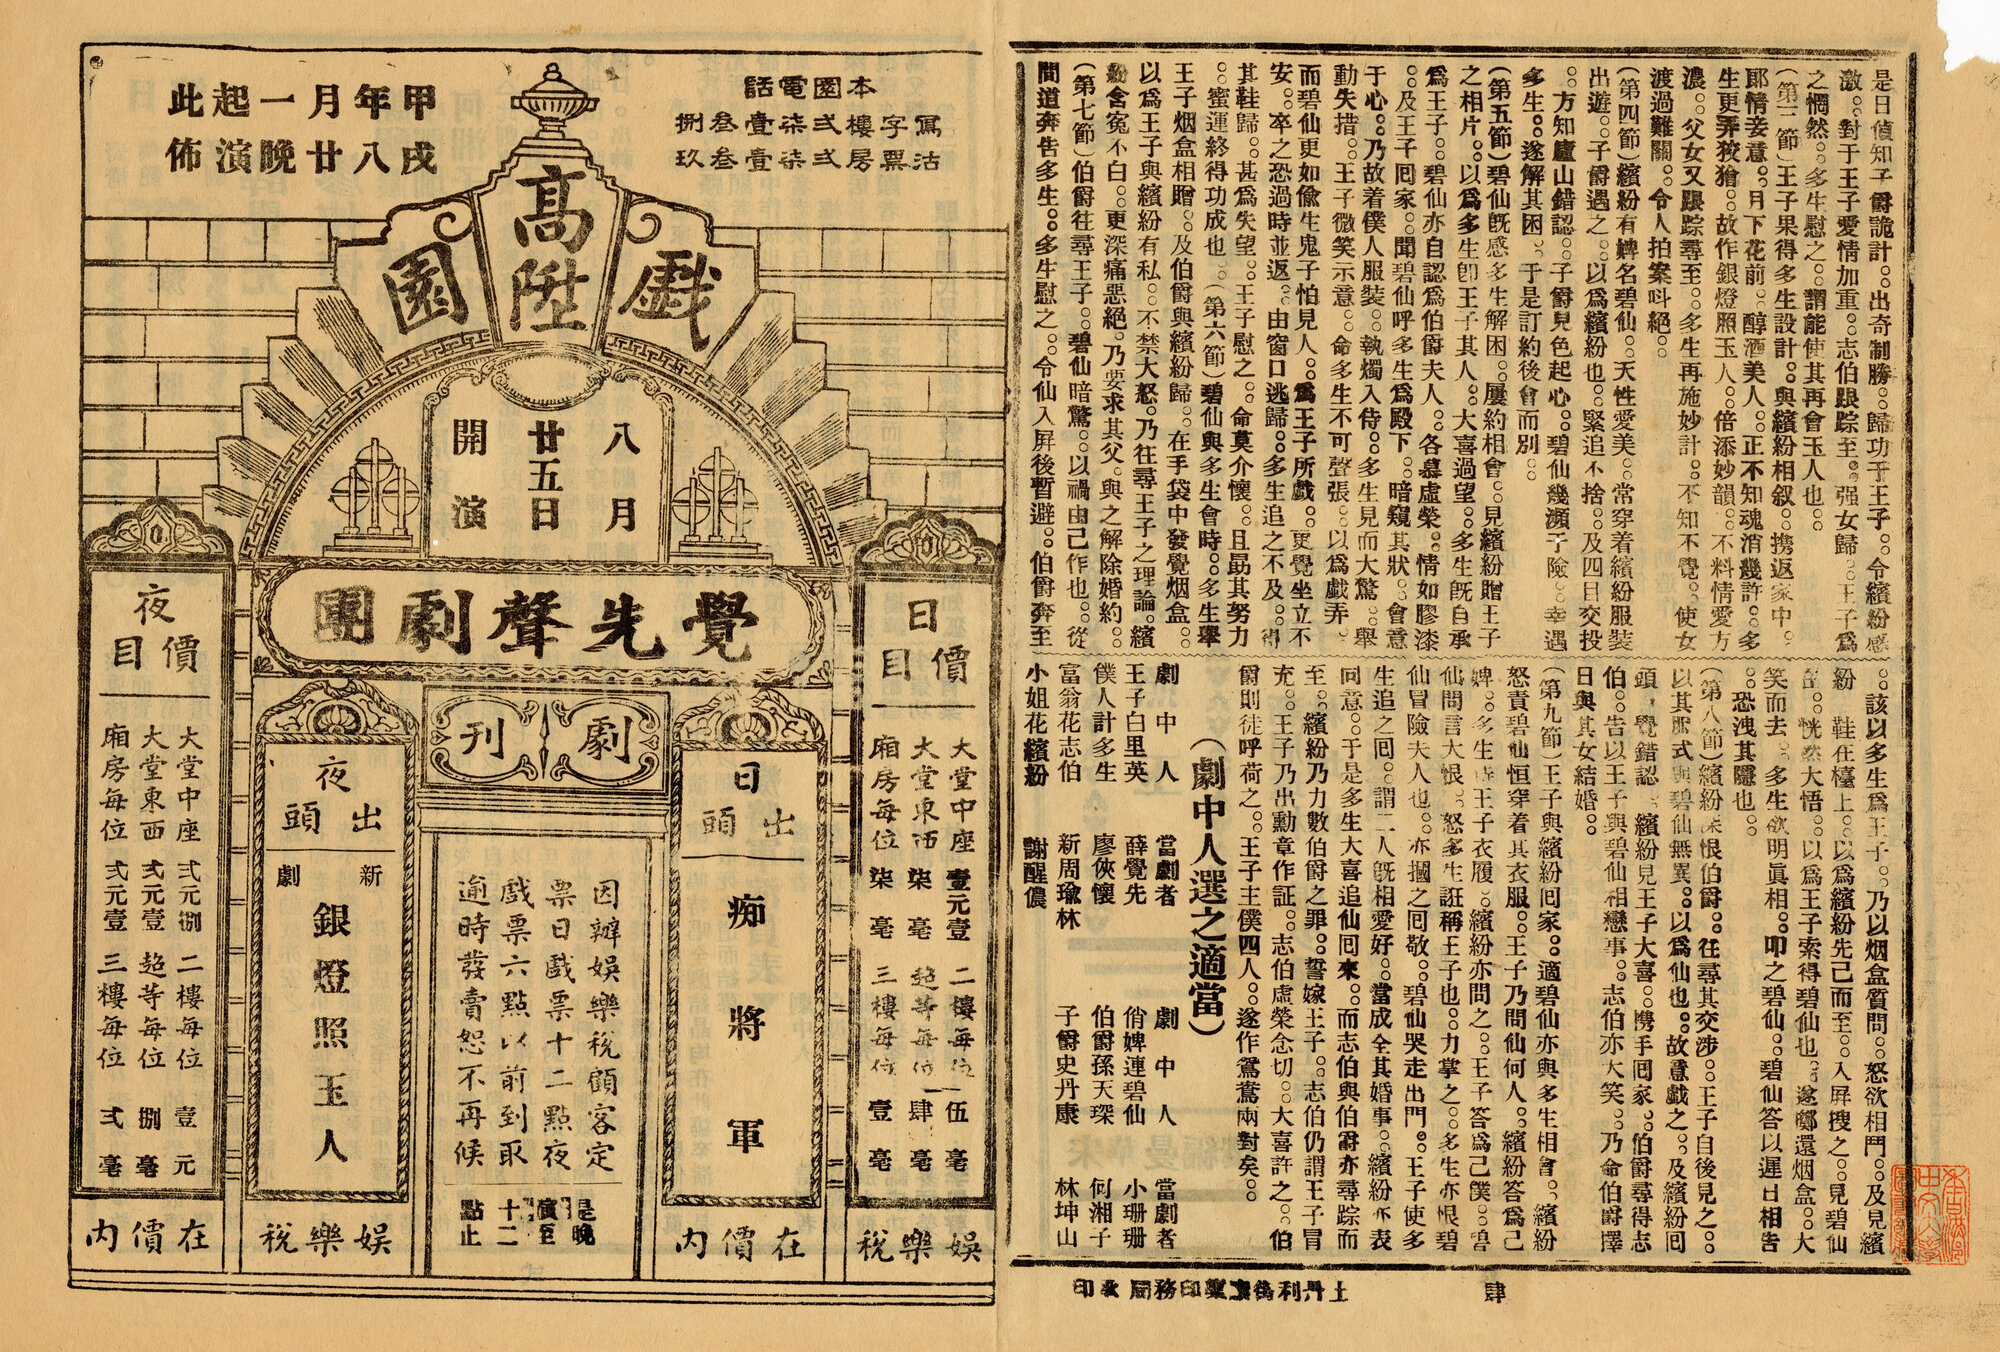 是日偵知子爵詭計。。出奇制勝。。歸功于王子。。令繽紛感
激。。對于王子愛情加重。。志伯跟踪至。。强女歸。。王子爲
之惘然。。多生慰之。。謂能使其再會玉人也。。
(第三節)王子果得多生設計。。與繽紛相叙。。携返家中。。
郞情妾意。。月下花前。。醇酒美人。。正不知魂消幾許。。多
生更弄狡獪。。故作銀燈照玉人。。倍添妙韻。。不料情愛方
濃。。父女又跟踪尋至。。多生再施妙計。。不知不覺。。使女
渡過難關。。令人拍案呌絕。。
(第四節)繽紛有婢名碧仙。。天性愛美。。常穿着繽紛服裝
出遊。。子爵遇之。。以爲繽紛也。。緊追不捨。。及四目交投
。。方知廬山錯認。。子爵見色起心。。碧仙幾瀕于險。。幸遇
多生。。遂解其困。。于是訂約後會而別。。
(第五節)碧仙旣感多生解困。。屢約相會。。見繽紛贈王子
之相片。。以爲多生卽王子其人。。大喜過望。。多生旣自承
爲王子。。碧仙亦自認爲伯爵夫人。。各慕虛榮。。情如膠漆
。。及王子囘家。。聞碧仙呼多生爲殿下。。暗窺其狀。。會意
于心。。乃故着僕人服裝。。執燭入侍。。多生見而大驚。。舉
動失措。。王子微笑示意。。命多生不可聲張。。以爲戲弄。。
而碧仙更如偸生鬼子怕見人。。爲王子所戲。。更覺坐立不
安。。卒之恐過時並返。。由窗口逃歸。。多生追之不及。。得
其鞋歸。。甚爲失望。。王子慰之。。命莫介懷。。且勗其努力
。。蜜運終得功成也。。(第六節)碧仙與多生會時。。多生舉
王子烟盒相贈。。及伯爵與繽紛歸。。在手袋中發覺烟盒。。
以爲王子與繽紛有私。。不禁大怒。。乃往尋王子之理論。。繽
紛含寃不白。。更深痛惡絕。。乃要求其父。。與之解除婚約。。
(第七節)伯爵往尋王子。。碧仙暗驚。。以禍由己作也。。從
間道奔告多生。。多生慰之。。令仙入屏後暫避。。伯爵奔至
。。該以多生爲王子。。乃以烟盒質問。。怒欲相鬥。。及見繽
紛 鞋在檯上。。以爲繽紛先己而至。。入屏搜之。。見碧仙
。。恍然大悟。。以爲王子索得碧仙也。。遂鄭還烟盒。。大
笑而去。。多生欲明眞相。。叩之碧仙。。碧仙答以遲日相告
。。恐洩其隱也。。
(第八節)繽紛深恨伯爵。。往尋其交涉。。王子自後見之。。
以其服式與碧仙無異。。以爲仙也。。故意戲之。。及繽紛囘
頭。覺錯認。。繽紛見王子大喜。。携手囘家。。伯爵尋得志
伯。。告以王子與碧仙相戀事。。志伯亦大笑。。乃命伯爵擇
日與其女結婚。。
(第九節)王子與繽紛囘家。。適碧仙亦與多生相會。。繽紛
怒責碧仙恒穿着其衣服。。王子乃問仙何人。。繽紛答爲己
婢。。多生 王子衣履。。繽紛亦問之。。王子答爲己僕。。碧
仙問言大恨。。怒多生誑稱王子也。。力掌之。。多生亦恨碧
仙冒險夫人也。。亦摑之囘敬。。碧仙哭走出門。。王子使多
生追之囘。。謂二人旣相愛好。。當成全其婚事。。繽紛亦表
同意。。于是多生大喜追仙囘來。。而志伯與伯爵亦尋踪而
至。。繽紛乃力數伯爵之罪。。誓嫁王子。。志伯仍謂王子冒
充。。王子乃出勳章作証。。志伯虛榮念切。。大喜許之。。伯
爵則徒呼荷荷。。王子主僕四人。。遂作鴛鴦兩對矣。。
(劇中人選之適當)
劇中人 當劇者 劇中人 當劇者
王子白里英 薛覺先 俏婢連碧仙 小珊珊
僕人計多生 廖俠懷 伯爵孫天琛 何湘子
富翁花志伯 新周瑜林 子爵史丹康 林坤山
小姐花繽紛 謝醒儂
肆
士丹利街廣 印務局承印
本園電話
寫字樓弍柒壹叁捌
沽票房弍柒壹叁玖
甲戌年八月廿一晚起演此佈
高陞戲園
八月
廿五日
開演
覺先聲劇團
劇刊
日價目
大堂中座 壹元壹 二樓每位 伍毫
大堂東西 柒毫 超等每位 肆毫
廂房每位 柒毫 三樓每位 壹毫
娛樂稅
在價內
日出頭
痴將軍
因辦娛樂稅顧客定
票日戲票十二點夜
戲票六點以前到取
逾時發賣恕不再候
是晚
演至
十二
點止
夜出頭
新劇
銀燈照玉人
娛樂稅
在價內
夜價目
大堂中座 弍元捌 二樓每位 壹元
大堂東西 弍元壹 超等每位 捌毫
廂房每位 弍元壹 三樓每位 弍毫